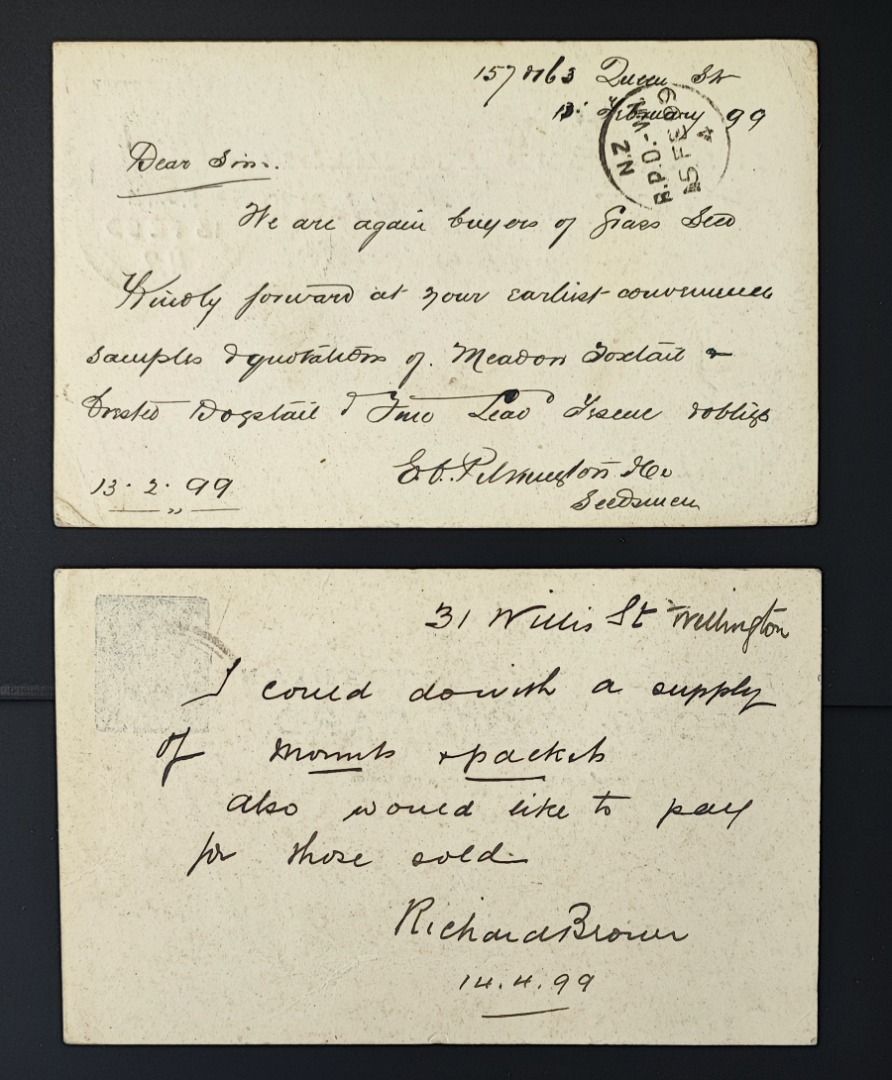 157 & 163 Queen St
13. February 99
N.Z
R.P.O.-
15 FE 99
4
Dear Sir.
We are again buyers of Grass Seed
Kindly forward at your earliest convenience
samples & quotations of. Meadow Foxtail &
Crested Dogstail & Fine Leaf Fescue & oblige
Pilkington & Co
Seedsmen
13. 2. 99
31 Willis St Wellington
I could do with a supply
of mounts & packets
also would like to pay
for those sold
Richard Brown
14.4.99